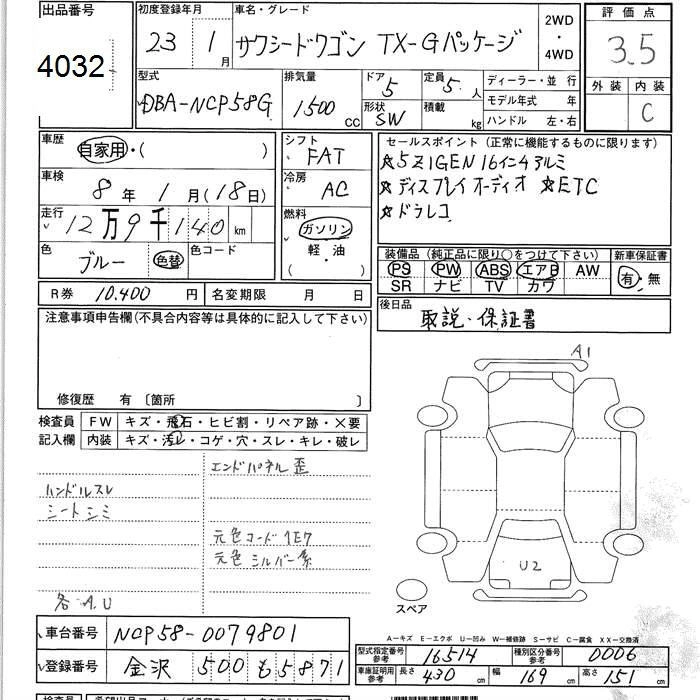 出品番号 4032
初度登録年月 23 1月
車名・グレード サクシードワゴン TX-Gパッケージ
2WD・4WD
評価点 3.5
外装 内装 C
型式 DBA-NCP58G
排気量 1500 cc
ドア 5
形状 SW
定員 5 人
積載 kg
ディーラー・並行
モデル年式 年
ハンドル 左・右
車歴 自家用・( )
車検 8年 1月(18日)
走行 12万9千140 km
色 ブルー 色替 色コード
シフト FAT
冷房 AC
燃料 ガソリン
軽・油
( )
セールスポイント(正常に機能するものに限ります)
☆5ZIGEN 16インチアルミ
☆ディスプレイオーディオ ☆ETC
☆ドラレコ
装備品(純正品に限り○をつけて下さい) 新車保証書
PS PW ABS エアB AW 有・無
SR ナビ TV カワ
R券 10.400 円 名変期限 月 日
後日品 取説・保証書
注意事項申告欄(不具合内容等は具体的に記入して下さい)
修復歴 有 〔箇所 〕
検査員記入欄
FW キズ・飛石・ヒビ割・リペア跡・×要
内装 キズ・汚レ・コゲ・穴・スレ・キレ・破レ
ハンドルスレ
シートシミ
各A.U
エンドパネル歪
元色コード 1E7
元色シルバー系
A1
U2
スペア
A-キズ E-エクボ U-凹み W-補修跡 S-サビ C-腐食 XX-交換済
車台番号 NCP58-0079801
登録番号 金沢 500 も 5871
型式指定番号 参考 16514
種別区分番号 参考 0006
車庫証明用 参考 長さ 430 cm 幅 169 cm 高さ 151 cm